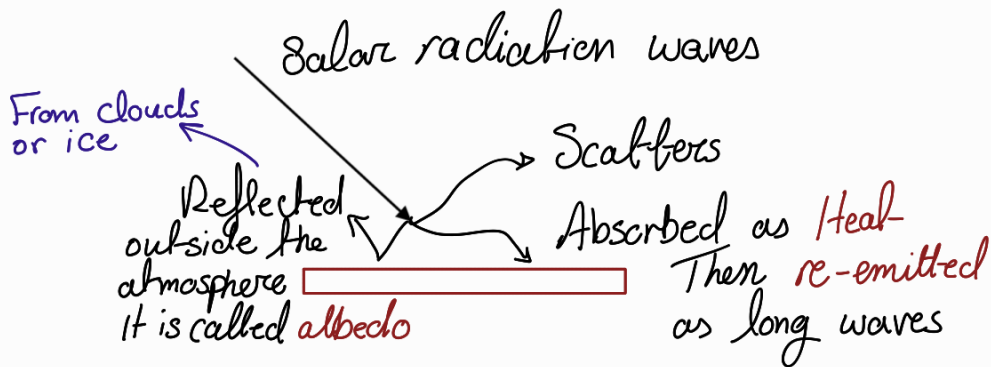 Solar radiation waves
From clouds
or ice
Scatters
Reflected
outside the
atmosphere
It is called albedo
Absorbed as Heat
Then re-emitted
as long waves